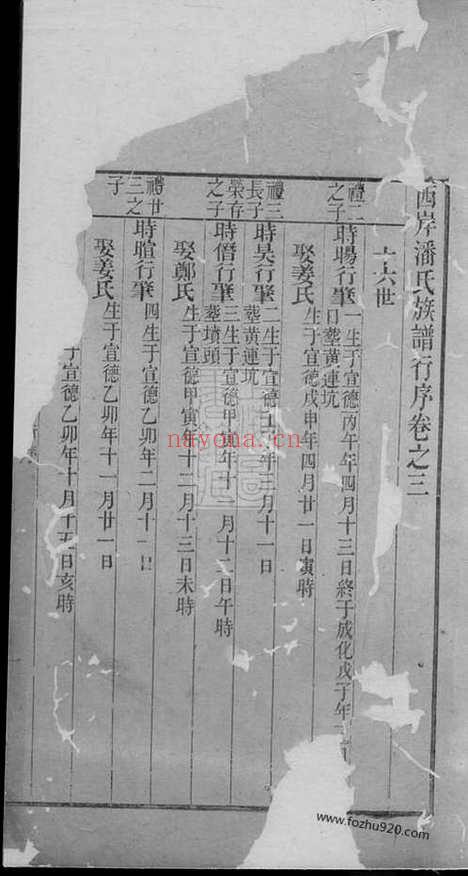 西岸潘氏族譜行序卷之三
十六世
禮二之子
時暘行肇一生于宣德丙午年四月十三日終于成化戊子年
日塟黄連坑
娶姜氏生于宣德戊申年四月廿一日寅時
禮三長子
時昊行肇二生于宣德年三月十一日
塟黄連坑
榮存之子
時僭行肇三生于宣德甲寅年十二月十二日午時
塟墳頭
娶鄭氏生于宣德甲寅年十二月十三日未時
禮廿三之子
時暄行肇四生于宣德乙卯年二月十日
娶姜氏生于宣德乙卯年十一月廿一日
于宣德乙卯年十月十五日亥時
nayona.cn
www.fozhu920.com